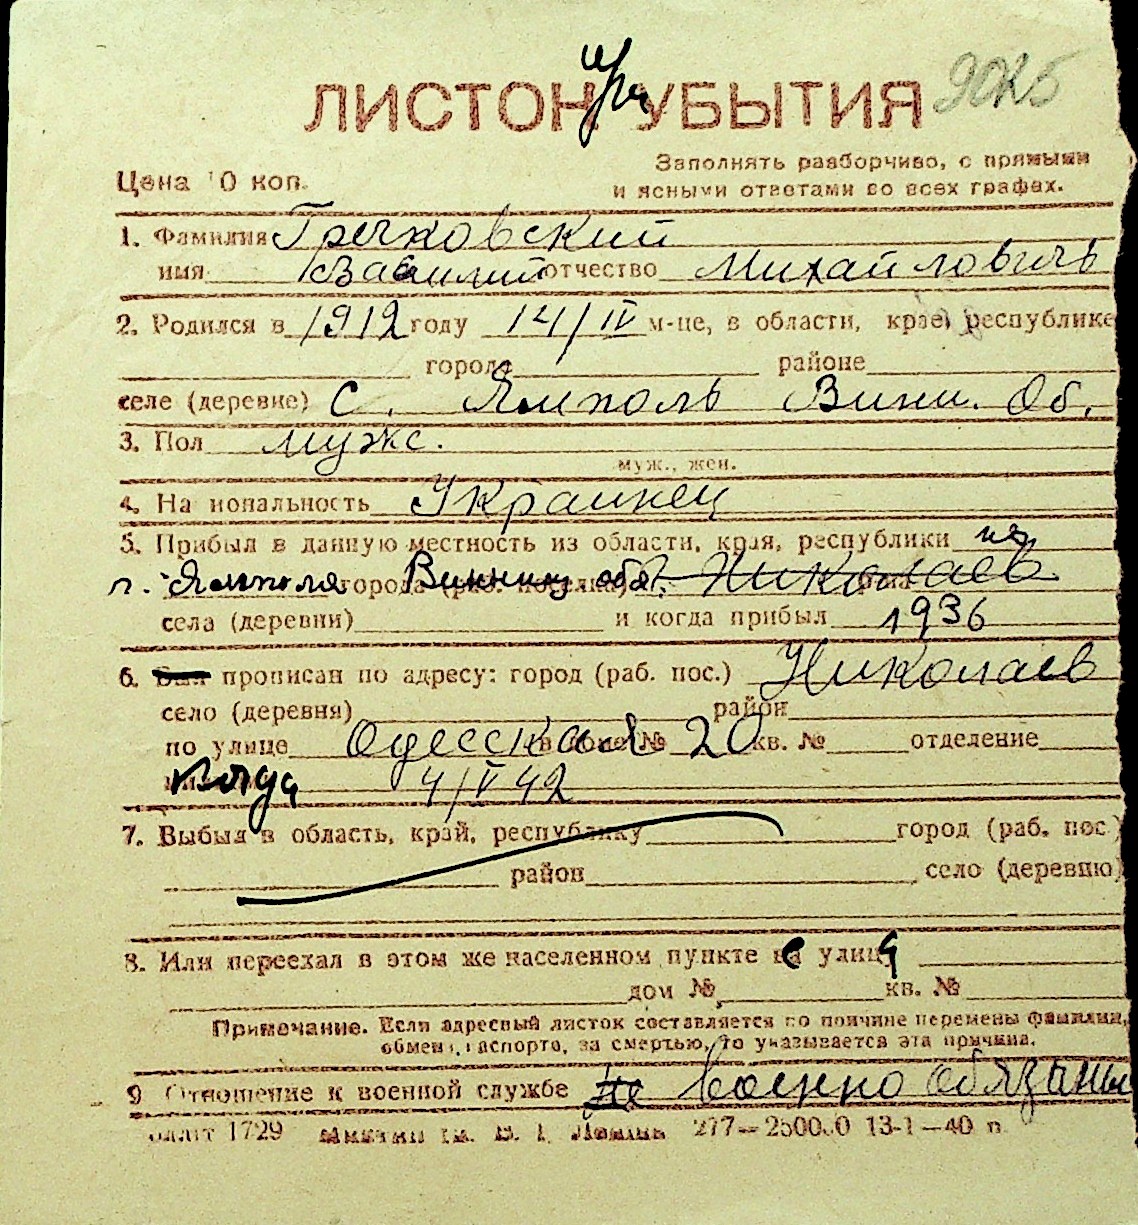 при
ЛИСТОК УБЫТИЯ
Цена 10 коп.
Заполнять разборчиво, с прямыми
и ясными ответами во всех графах.
1. Фамилия Гречковский
имя Василий отчество Михайлович
2. Родился в 1912 году 14/IV м-це, в области, крае, республике
города районе
селе (деревне) с. Ямполь Винн. Об.
3. Пол мужс.
муж., жен.
4. Национальность Украинец
5. Прибыл в данную местность из области, края, республики из
г. Ямполя города Винниц обл. Николаев
села (деревни) и когда прибыл 1936
6. Был прописан по адресу: город (раб. пос.) Николаев
село (деревня) район
по улице Одесская в доме № 20 кв. № отделение
когда 4/V 42
7. Выбыл в область, край, республику город (раб. пос.)
район село (деревню)
8. Или переехал в этом же населенном пункте с улицы
дом № кв. №
Примечание. Если адресный листок составляется по причине перемены фамилии,
обмена паспорта, за смертью, то указывается эта причина.
9 Отношение к военной службе не военно обязаны
1729 277—250000 13-1—40 г.